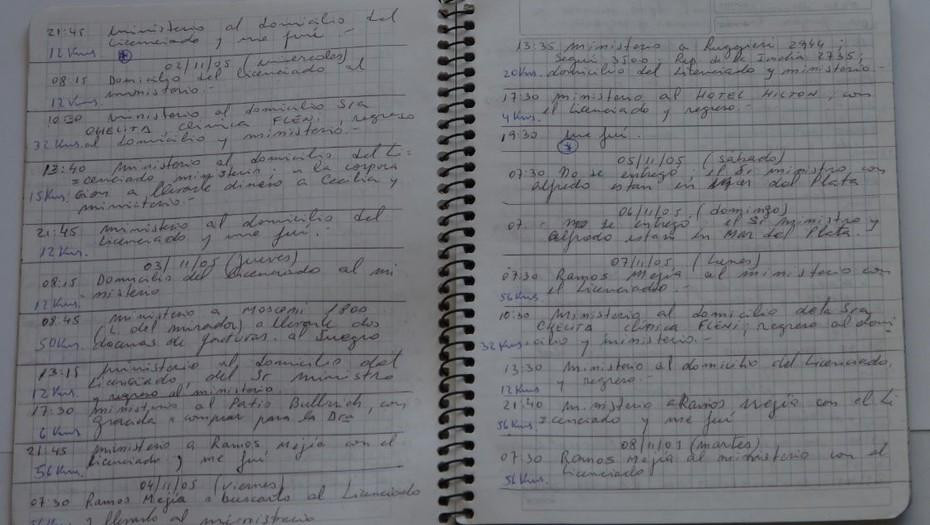 21:45 ministerio al domicilio del
12 Kms. Licenciado y me fui.-
02/11/05 (miercoles)
08:15 Domicilio del Licenciado al
12 Kms. ministerio.-
10:30 ministerio al domicilio Sra
CHELITA, clinica FLENI, regreso
32 Kms. al domicilio y ministerio.-
13:40 Ministerio al domicilio del Li=
=cenciado ministerio; a la corpora
15 Kms. cion a llevarle dinero a Cecilia y
ministerio.-
21:45 ministerio al domicilio del
12 Kms. Licenciado y me fui.-
03/11/05 (jueves)
08:15 Domicilio del Licenciado al mi
12 Kms. =nisterio
08:45 ministerio a MOSCONI 1800
(L. del mirador) a llevarle dos
50 Kms. docenas de facturas. al suegro
13:15 ministerio al domicilio del
Licenciado, del Sr ministro
12 Kms. y regreso al ministerio
17:30 ministerio al Patio Bullrich, con
6 Kms. a comprar para la Dra
21:45 ministerio a Ramos Mejia con el
56 Kms. Licenciado y me fui
04/11/05 (viernes)
07:30 Ramos Mejia a buscarlo al Licenciado
56 Kms. y llevarlo al ministerio
13:35 ministerio a Ruggieri 2944;
Segui 3500; Rep. de la India 2735;
20 Kms. domicilio del Licenciado y ministerio.-
17:30 ministerio al HOTEL HILTON, con
4 Kms. el Licenciado y regreso.-
19:30 me fui.
05/11/05 (sabado)
07:30 No se entregó; el Sr ministro, con
Alfredo estan en Mar del Plata
06/11/05 (domingo)
07 - No se entregó el Sr Ministro y
Alfredo estan en Mar del Plata.
07/11/05 (lunes)
07:30 Ramos Mejia, al ministerio con
56 Kms. el Licenciado.-
10:30 Ministerio al domicilio de la Sra
CHELITA, clinica FLENI, regreso al domi
32 Kms. =cilio y ministerio.-
13:30 Ministerio al domicilio del Licenciado,
12 Kms. y regreso.
21:40 Ministerio a Ramos Mejia con el Li
56 Kms. =cenciado y me fui
08/11/05 (martes)
07:30 Ramos Mejia al ministerio con el
56 Kms. Licenciado